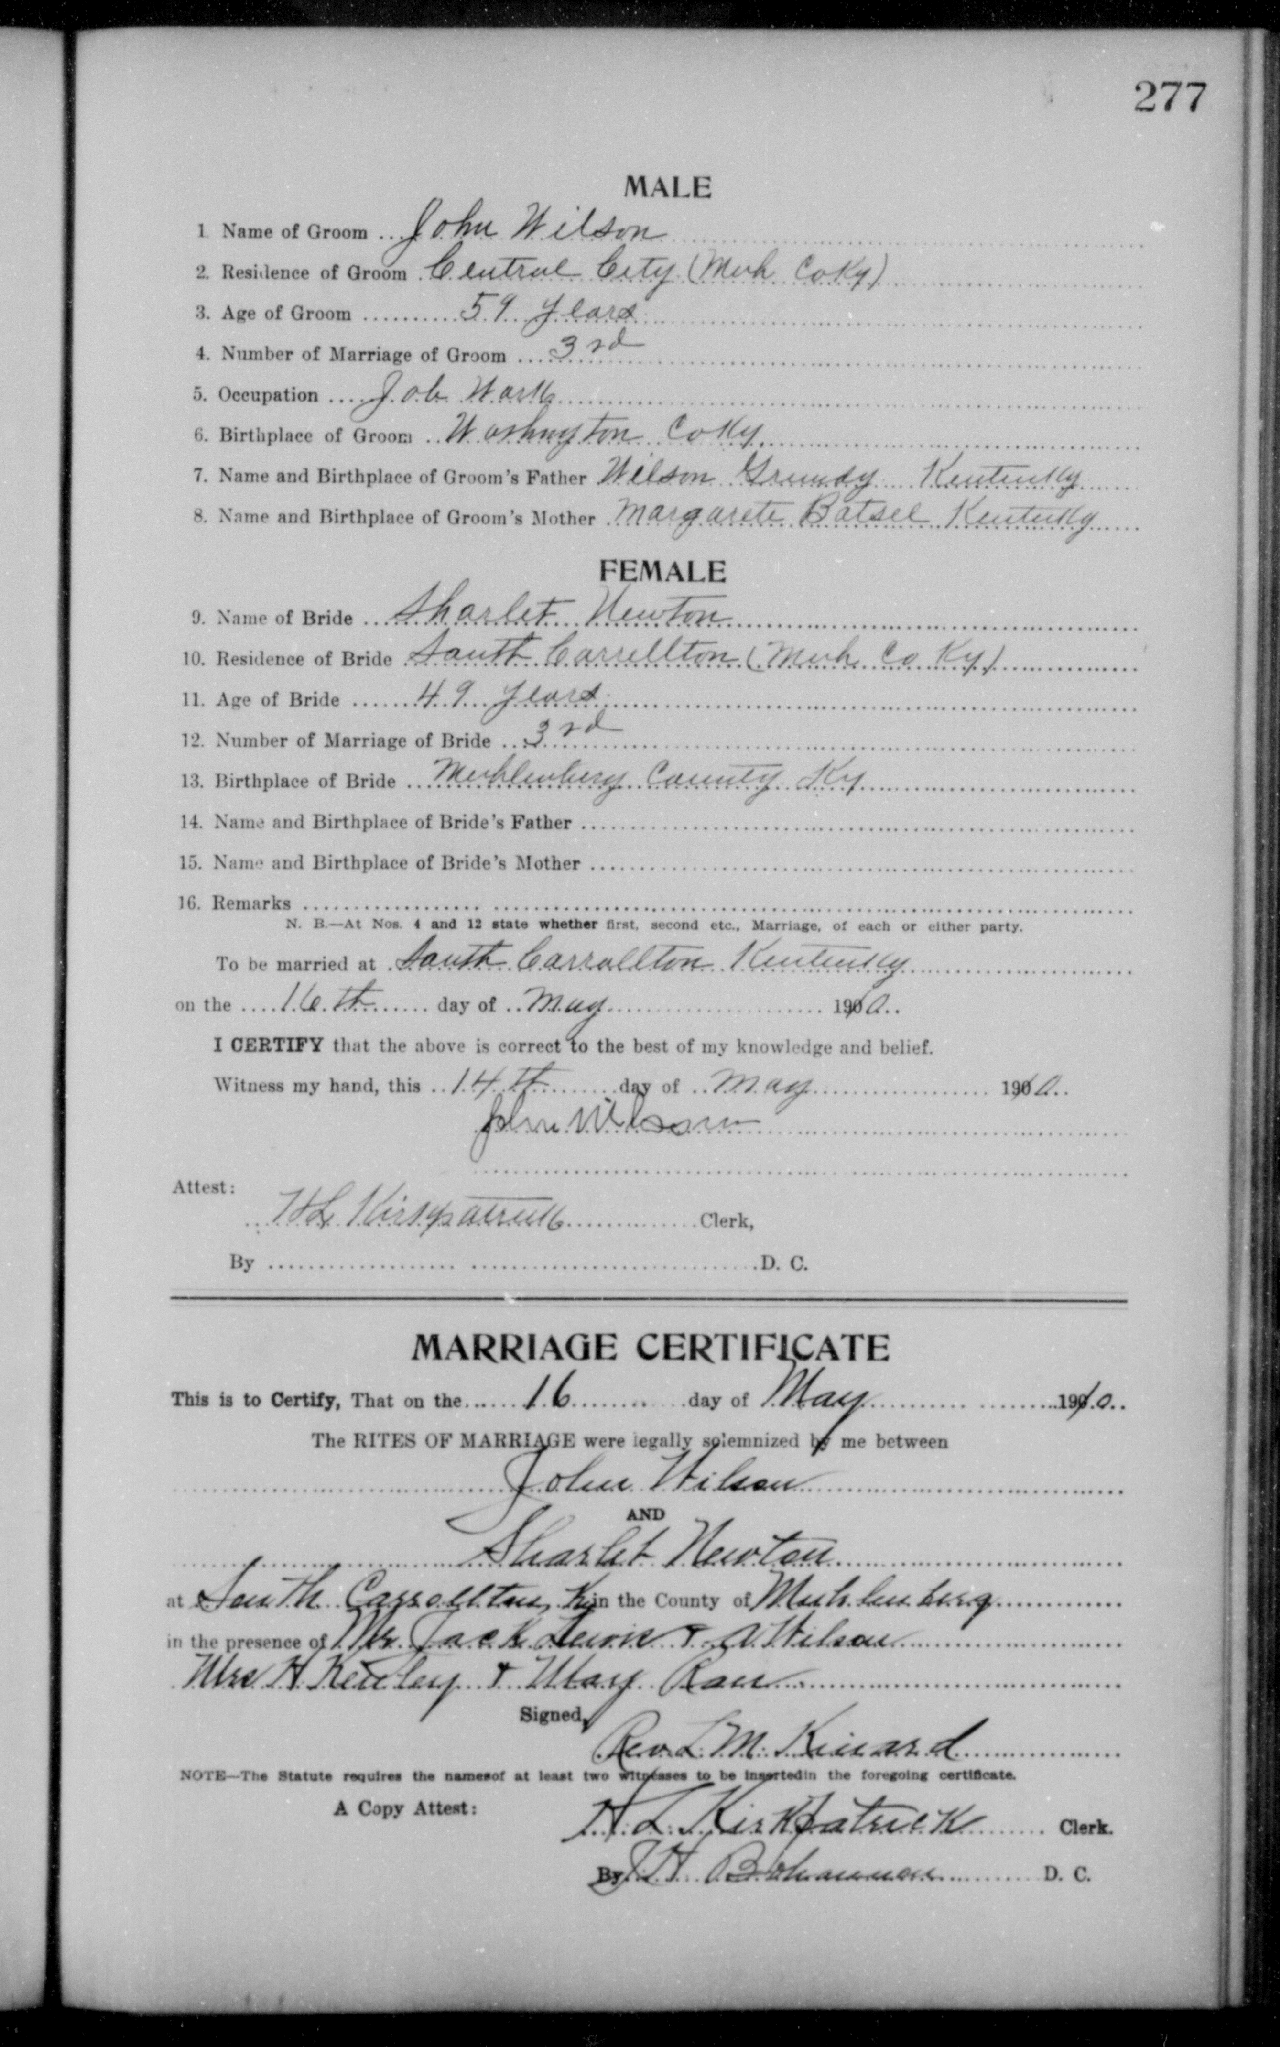 277
MALE
1 Name of Groom John Wilson
2. Residence of Groom Central City (Muh Co Ky)
3. Age of Groom 59 years
4. Number of Marriage of Groom 3rd
5. Occupation Job Work
6. Birthplace of Groom Washington Co Ky
7. Name and Birthplace of Groom's Father Wilson Grundy Kentucky
8. Name and Birthplace of Groom's Mother Margarete Batsel Kentucky
FEMALE
9. Name of Bride Sharlet Newton
10. Residence of Bride South Carrellton (Muh Co Ky)
11. Age of Bride 49 years
12. Number of Marriage of Bride 3rd
13. Birthplace of Bride Muhlenberg County Ky
14. Name and Birthplace of Bride's Father
15. Name and Birthplace of Bride's Mother
16. Remarks
N. B.—At Nos. 4 and 12 state whether first, second etc., Marriage, of each or either party.
To be married at South Carrollton Kentucky
on the 16th day of May 1910
I CERTIFY that the above is correct to the best of my knowledge and belief.
Witness my hand, this 14th day of May 1910
John Wilson
Attest:
H L Kirkpatrick Clerk,
By D. C.
MARRIAGE CERTIFICATE
This is to Certify, That on the 16 day of May 1910
The RITES OF MARRIAGE were legally solemnized by me between
John Wilson
AND
Sharlet Newton
at South Carrollton, Ky in the County of Muhlenberg
in the presence of Mr. Jack Lewis + A Wilson
Mrs H Kenley + May
Signed,
Rev L. M. Kinard
NOTE—The Statute requires the namesof at least two witnesses to be insertedin the foregoing certificate.
A Copy Attest:
H. L. Kirkpatrick Clerk.
By J H Bohannon D. C.